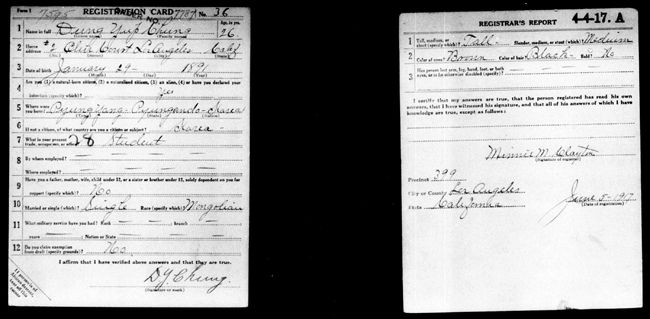 Form 1
7595
REGISTRATION CARD
ORDER NO. 7787
No. 36
1 Name in full Dung Yup Chung
Age, in yrs. 26
(Given name) (Family name)
2 Home address Court Los Angeles Calif
(No.) (Street) (City) (State)
3 Date of birth January 29 1891
(Month) (Day) (Year)
4 Are you (1) a natural-born citizen, (2) a naturalized citizen, (3) an alien, (4) or have you declared your
intention (specify which)? Yes
5 Where were you born? Korea
(Town) (State) (Nation)
6 If not a citizen, of what country are you a citizen or subject? Korea
7 What is your present trade, occupation, or office? 28 Student
8 By whom employed?
Where employed?
9 Have you a father, mother, wife, child under 12, or a sister or brother under 12, solely dependent on you for
support (specify which)? No
10 Married or single (which)? Single Race (specify which)? Mongolian
11 What military service have you had? Rank ; branch
years ; Nation or State
12 Do you claim exemption from draft (specify grounds)? No
I affirm that I have verified above answers and that they are true.
D Y Chung
(Signature or mark)
REGISTRAR'S REPORT
4-4-17. A
1 Tall, medium, or short (specify which)? Tall Slender, medium, or stout (which)? Medium
2 Color of eyes? Brown Color of hair? Black Bald? No
3 Has person lost arm, leg, hand, foot, or both eyes, or is he otherwise disabled (specify)?
I certify that my answers are true, that the person registered has read his own
answers, that I have witnessed his signature, and that all of his answers of which I have
knowledge are true, except as follows:
Minnie M. Clayton
(Signature of registrar)
Precinct 299
City or County Los Angeles
State California
June 5-1917
(Date of registration)